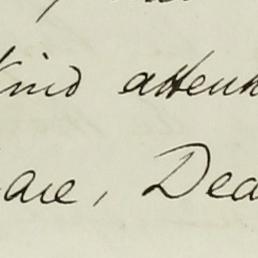 kind atten
are, Dea